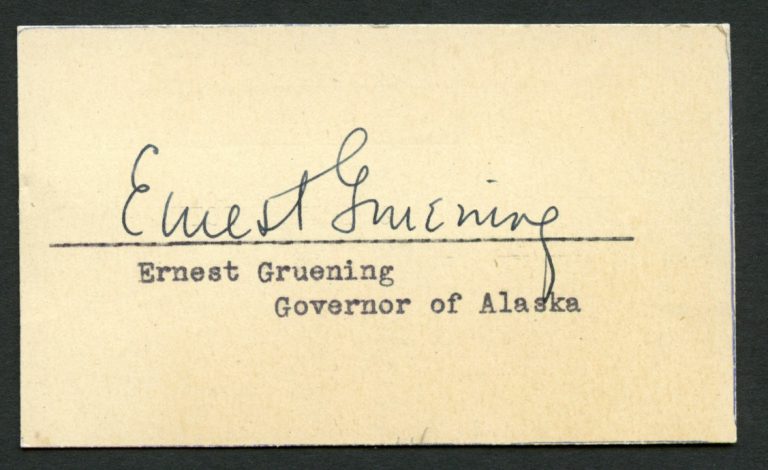 Ernest Gruening
Ernest Gruening
Governor of Alaska